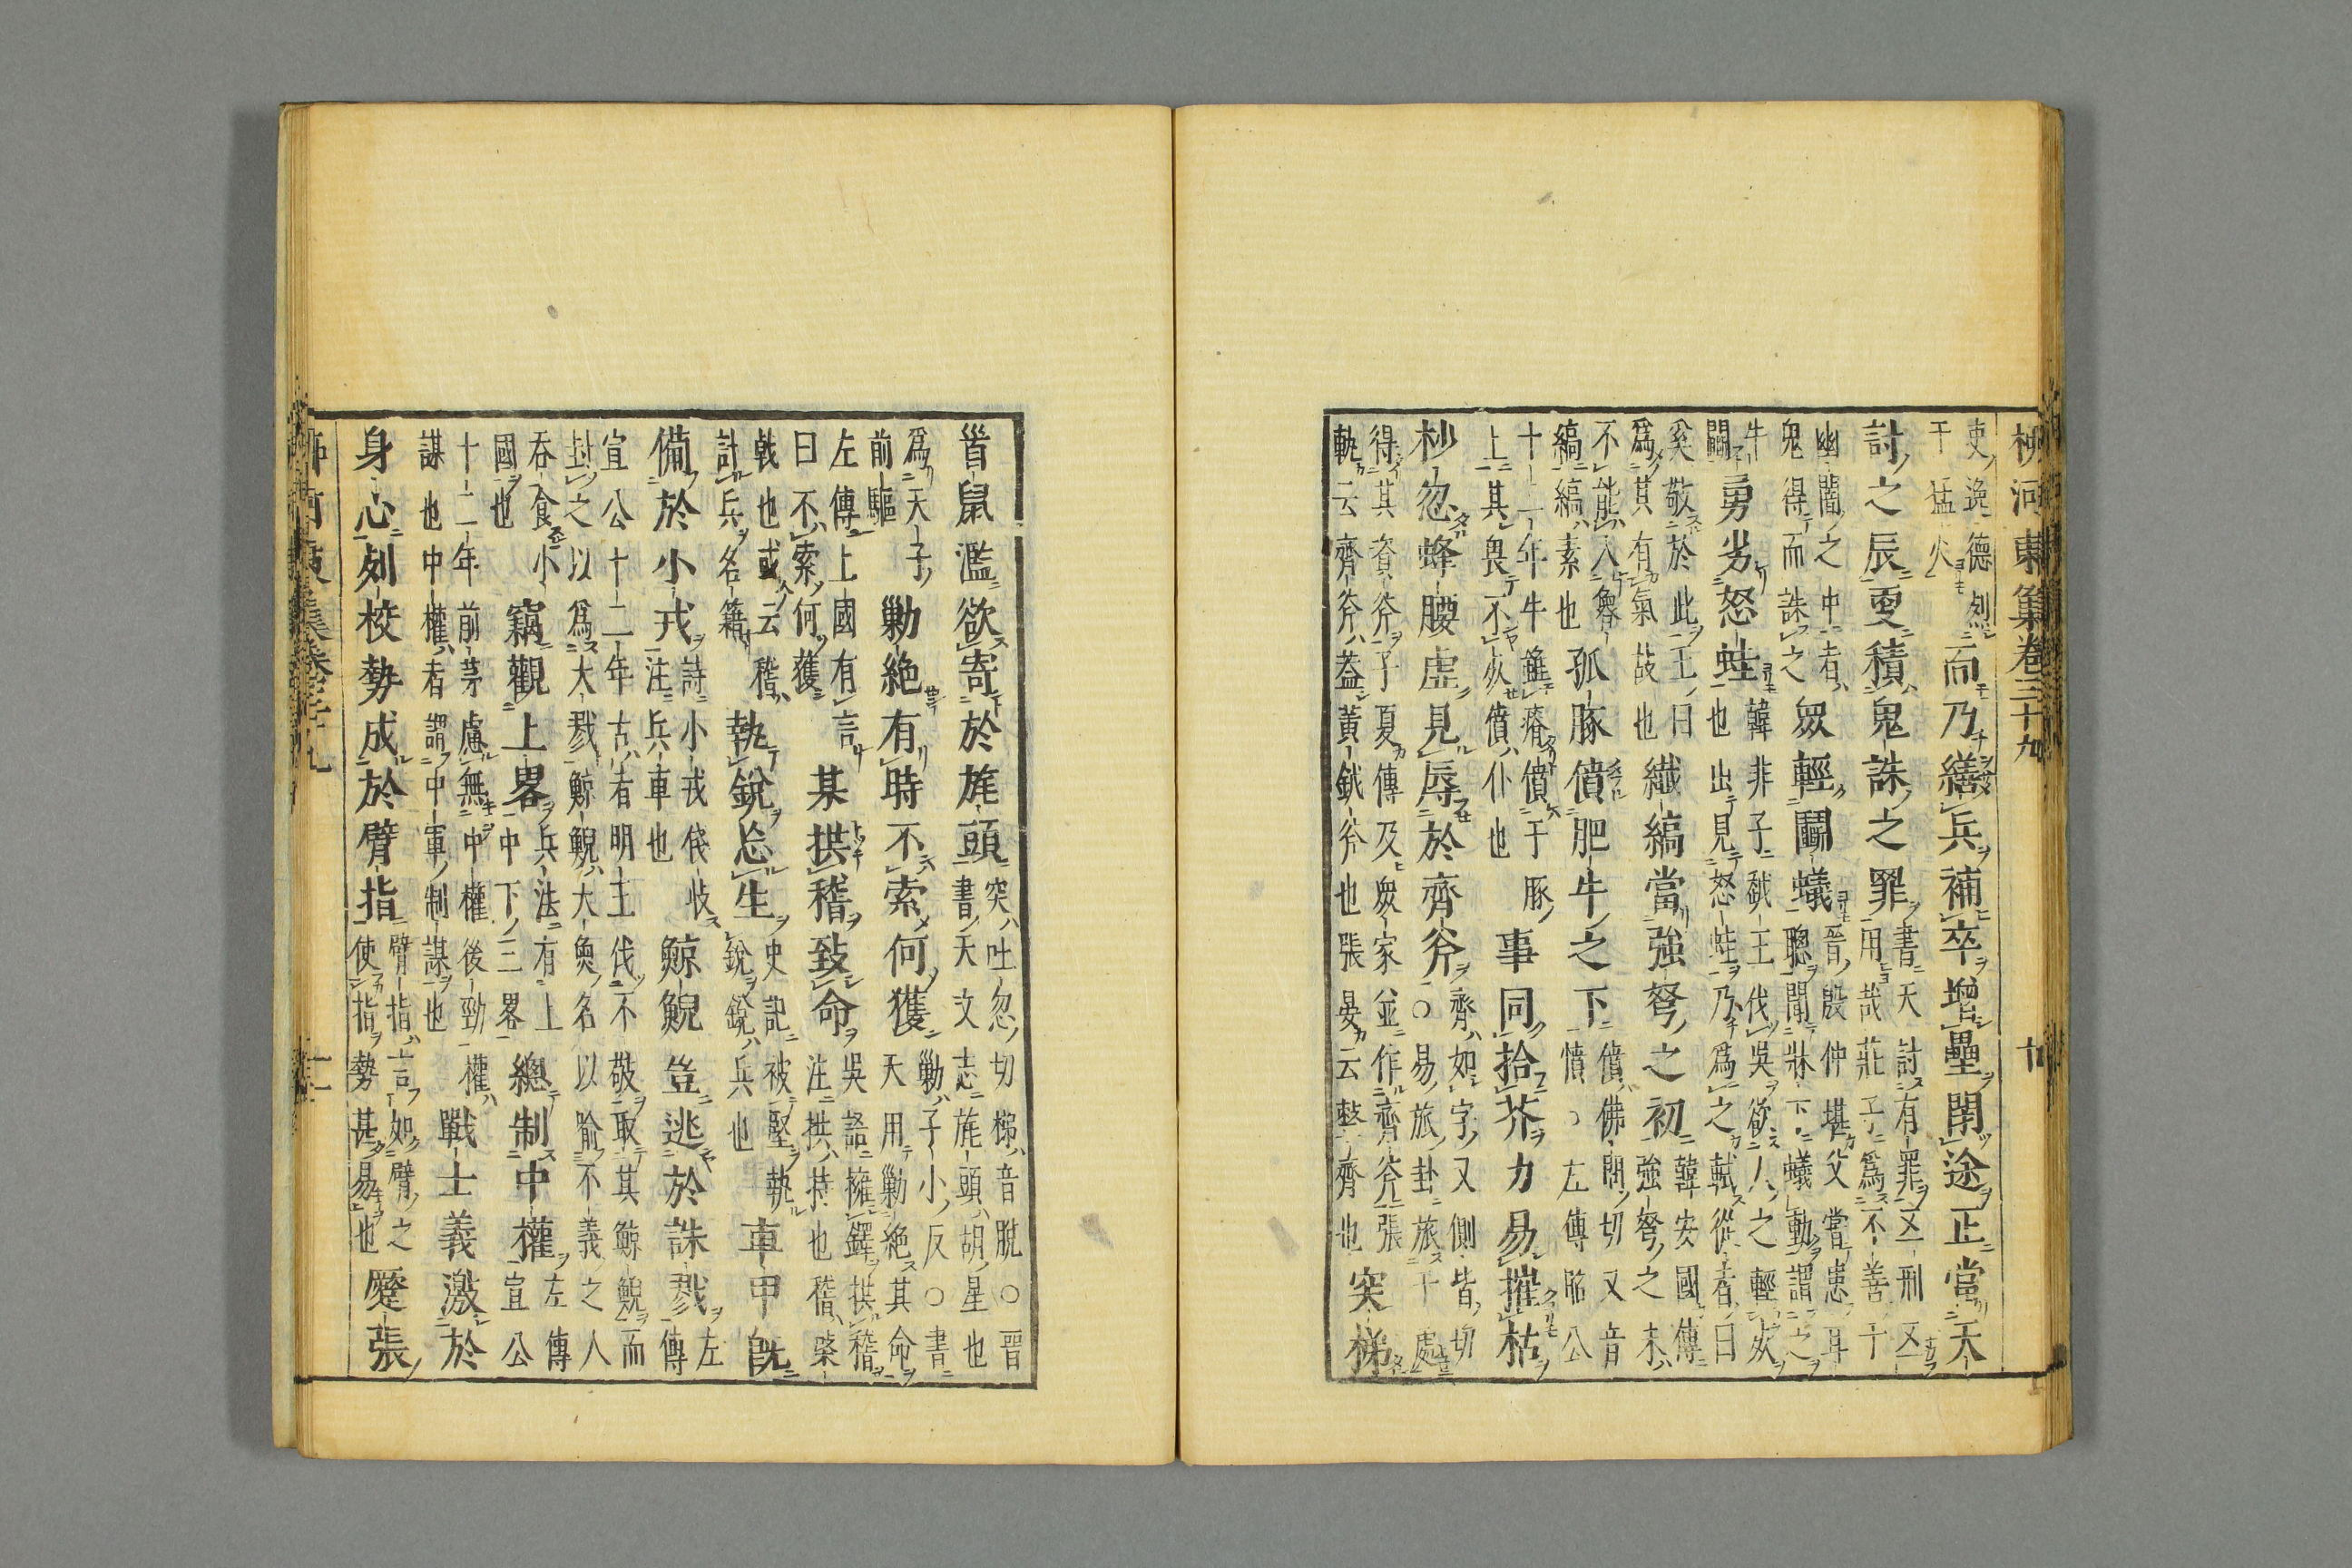 柳河東集卷三十九 十
吏逸德烈
于猛火
而乃繕兵補卒增壘閉途正當天
討之辰更積鬼誅之罪
書天討有罪五刑五
用哉莊子為不善于
幽闇之中者
鬼得而誅之
眾輕鬬蟻
晉殷仲堪父嘗患耳
聰聞牀下蟻動謂之
牛
鬬
勇劣怒蛙
韓非子越王伐吳欲人之輕死
也出見怒蛙乃為之軾從者曰
奚敬於此王曰
為其有氣故也
纎縞當強弩之初
韓安國傳
強弩之末
不能入魯
縞縞素也
孤豚僨肥牛之下
僨佛問切又音
憤○左傳昭公
十二年牛雖瘠僨于豚
上其畏不死僨仆也
事同拾芥力易摧枯
杪忽蜂腰虛見辱於齊斧
齊如字又側皆切
○易旅卦旅于處
得其資斧子夏傳及眾家並作齊斧張
軌云齊斧蓋黃鉞斧也張晏云整齊也
突梯
首鼠濫欲寄於旄頭
突吐忽切梯音脫○晉
書天文志旄頭胡星也
為天子
前驅
勦絕有時不索何獲
勦子小反○書
天用勦絕其命
左傳上國有言
曰不索何獲
某拱稽致命
吳語擁鐸拱稽
注拱持也稽棨
戟也或云稽
計兵名籍
執銳忘生
史記被堅執
銳銳兵也
車甲既
備於小戎
詩小戎俴收
注兵車也
鯨鯢豈逃於誅戮
左
傳
宣公十二年古者明王伐不敬取其鯨鯢而
封之以為大戮鯨鯢大魚名以喻不義之人
吞食小
國也
竊觀上畧
兵法有上
中下三畧
總制中權
左傳
宣公
十二年前茅慮無中權後勁權
謀也中權者謂中軍制謀也
戰士義激於
身心列校勢成於臂指
臂指言如臂之
使指勢甚易也
蹙張
柳河東集卷三十九 十一